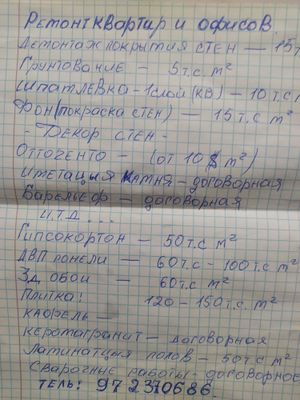 Ремонт квартир и офисов.
Демонтаж покрытия стен — 15т
Грунтование — 5т.с м²
Шпатлёвка - 1слой (кв) — 10 т.с
Фон (покраска стен) — 15 т.с м²
- Декор стен -
Отточенто — (от 10$ м²)
Иметация камня - договорная
Барельеф — договорная
и.т.д...
Гипсокортон — 50т.с м²
ДВП понели — 60т.с - 100т.с м²
3д обои — 60т.с м²
Плитка! 120 - 150т.с м²
кафель —
керамагранит — договорная
Латинатция полов — 50т.с м²
Сварочные работы - договорное
тель: 972370686.